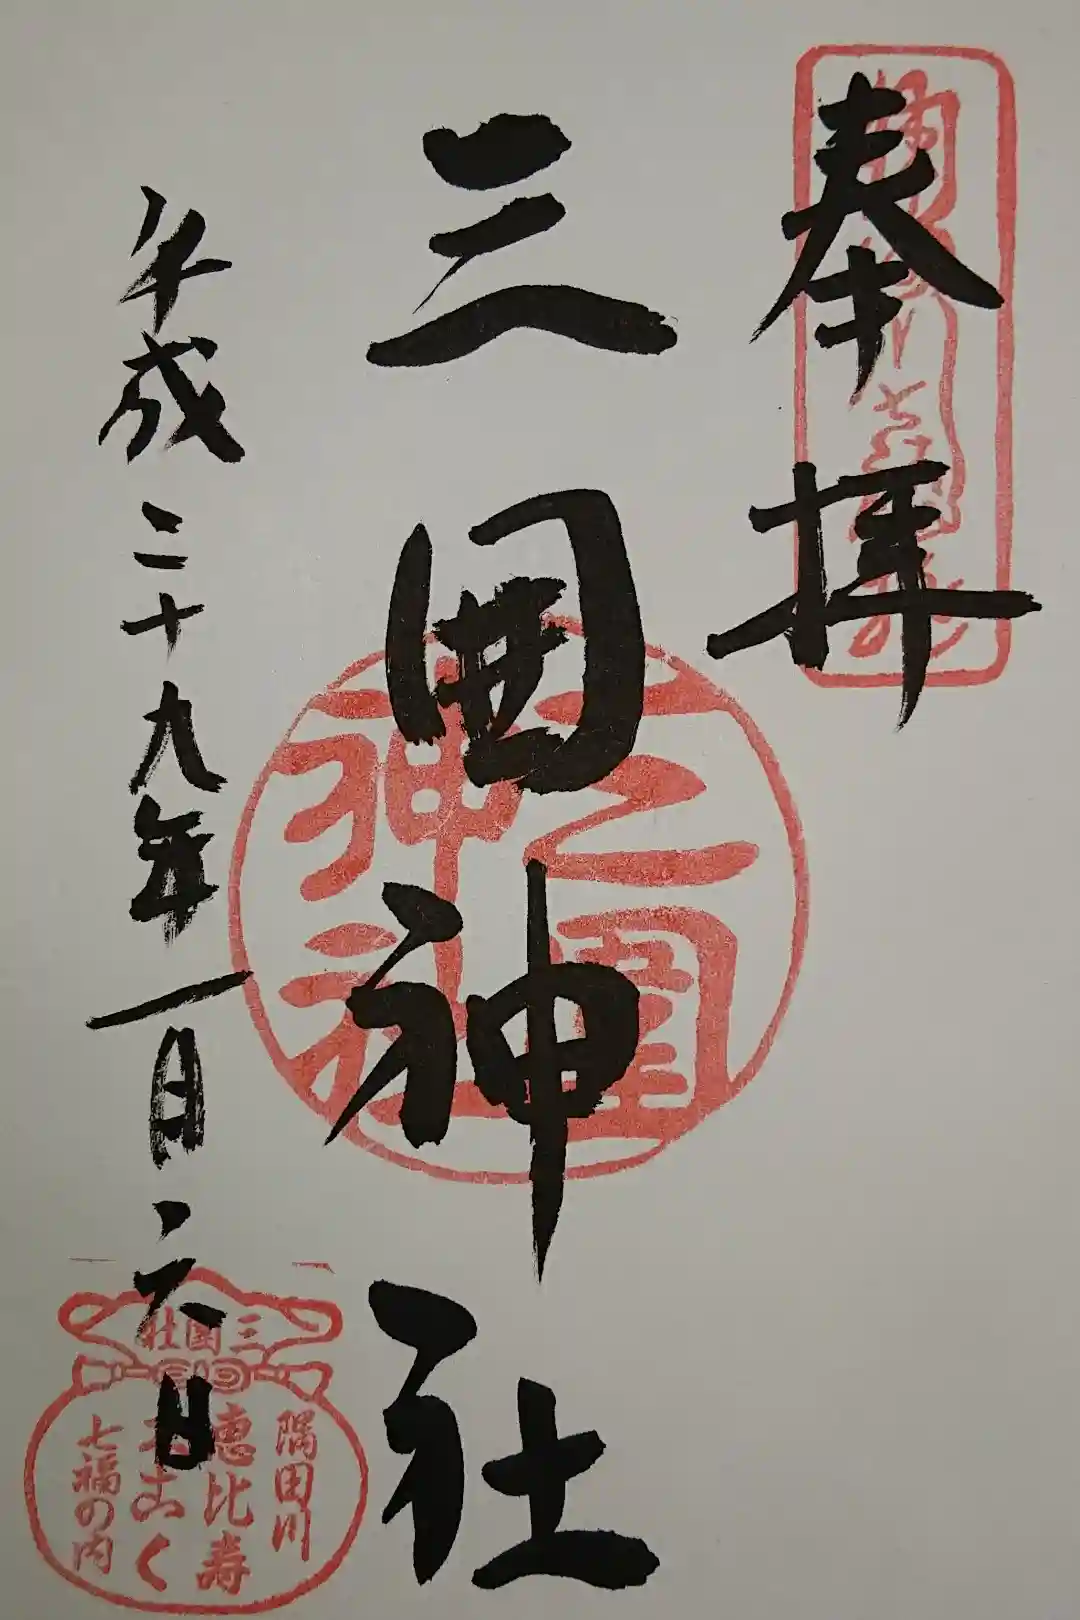 奉拝
三囲神社
平成二十九年一月六日
三囲神社
三囲社
隅田川
恵比寿
大こく
七福の内